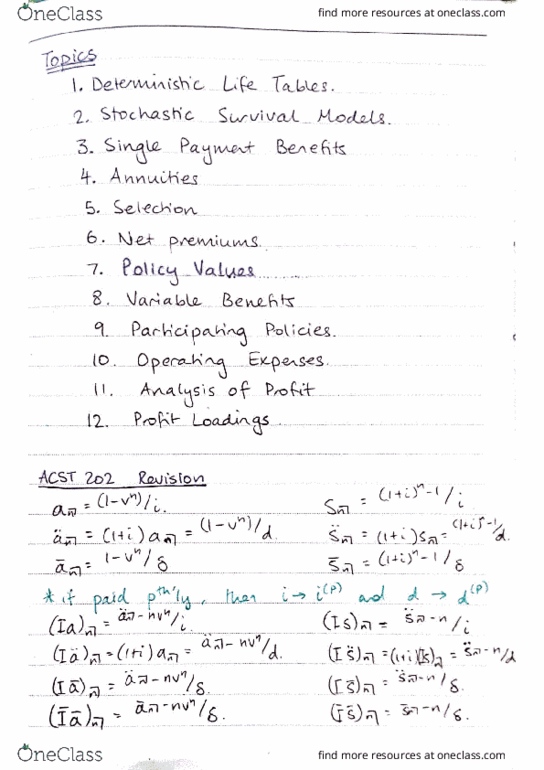 OneClass find more resources at oneclass.com
Topics
1. Deterministic Life Tables.
2. Stochastic Survival Models.
3. Single Payment Benefits
4. Annuities
5. Selection
6. Net premiums.
7. Policy Values
8. Variable Benefits
9. Participating Policies.
10. Operating Expenses.
11. Analysis of Profit
12. Profit Loadings
ACST 202 Revision
a_n̅| = (1-vⁿ)/i. S_n̅| = (1+i)ⁿ-1/i
ä_n̅| = (1+i) a_n̅| = (1-vⁿ)/d. s̈_n̅| = (1+i) s_n̅| = (1+i)ⁿ-1/d.
ā_n̅| = 1-vⁿ/δ s̄_n̅| = (1+i)ⁿ-1/δ
* if paid pᵗʰ'ly, then i → i⁽ᵖ⁾ and d → d⁽ᵖ⁾
(Ia)_n̅| = ä_n̅| - nvⁿ/i (Is)_n̅| = s̈_n̅| - n/i
(Iä)_n̅| = (1+i) a_n̅| = ä_n̅| - nvⁿ/d. (Is̈)_n̅| = (1+i)(Is)_n̅| = s̈_n̅| - n/d
(Iā)_n̅| = ä_n̅| - nvⁿ/δ. (Is̄)_n̅| = s̈_n̅| - n/δ.
(Īā)_n̅| = ā_n̅| - nvⁿ/δ. (Īs̄)_n̅| = s̄_n̅| - n/δ.
OneClass find more resources at oneclass.com